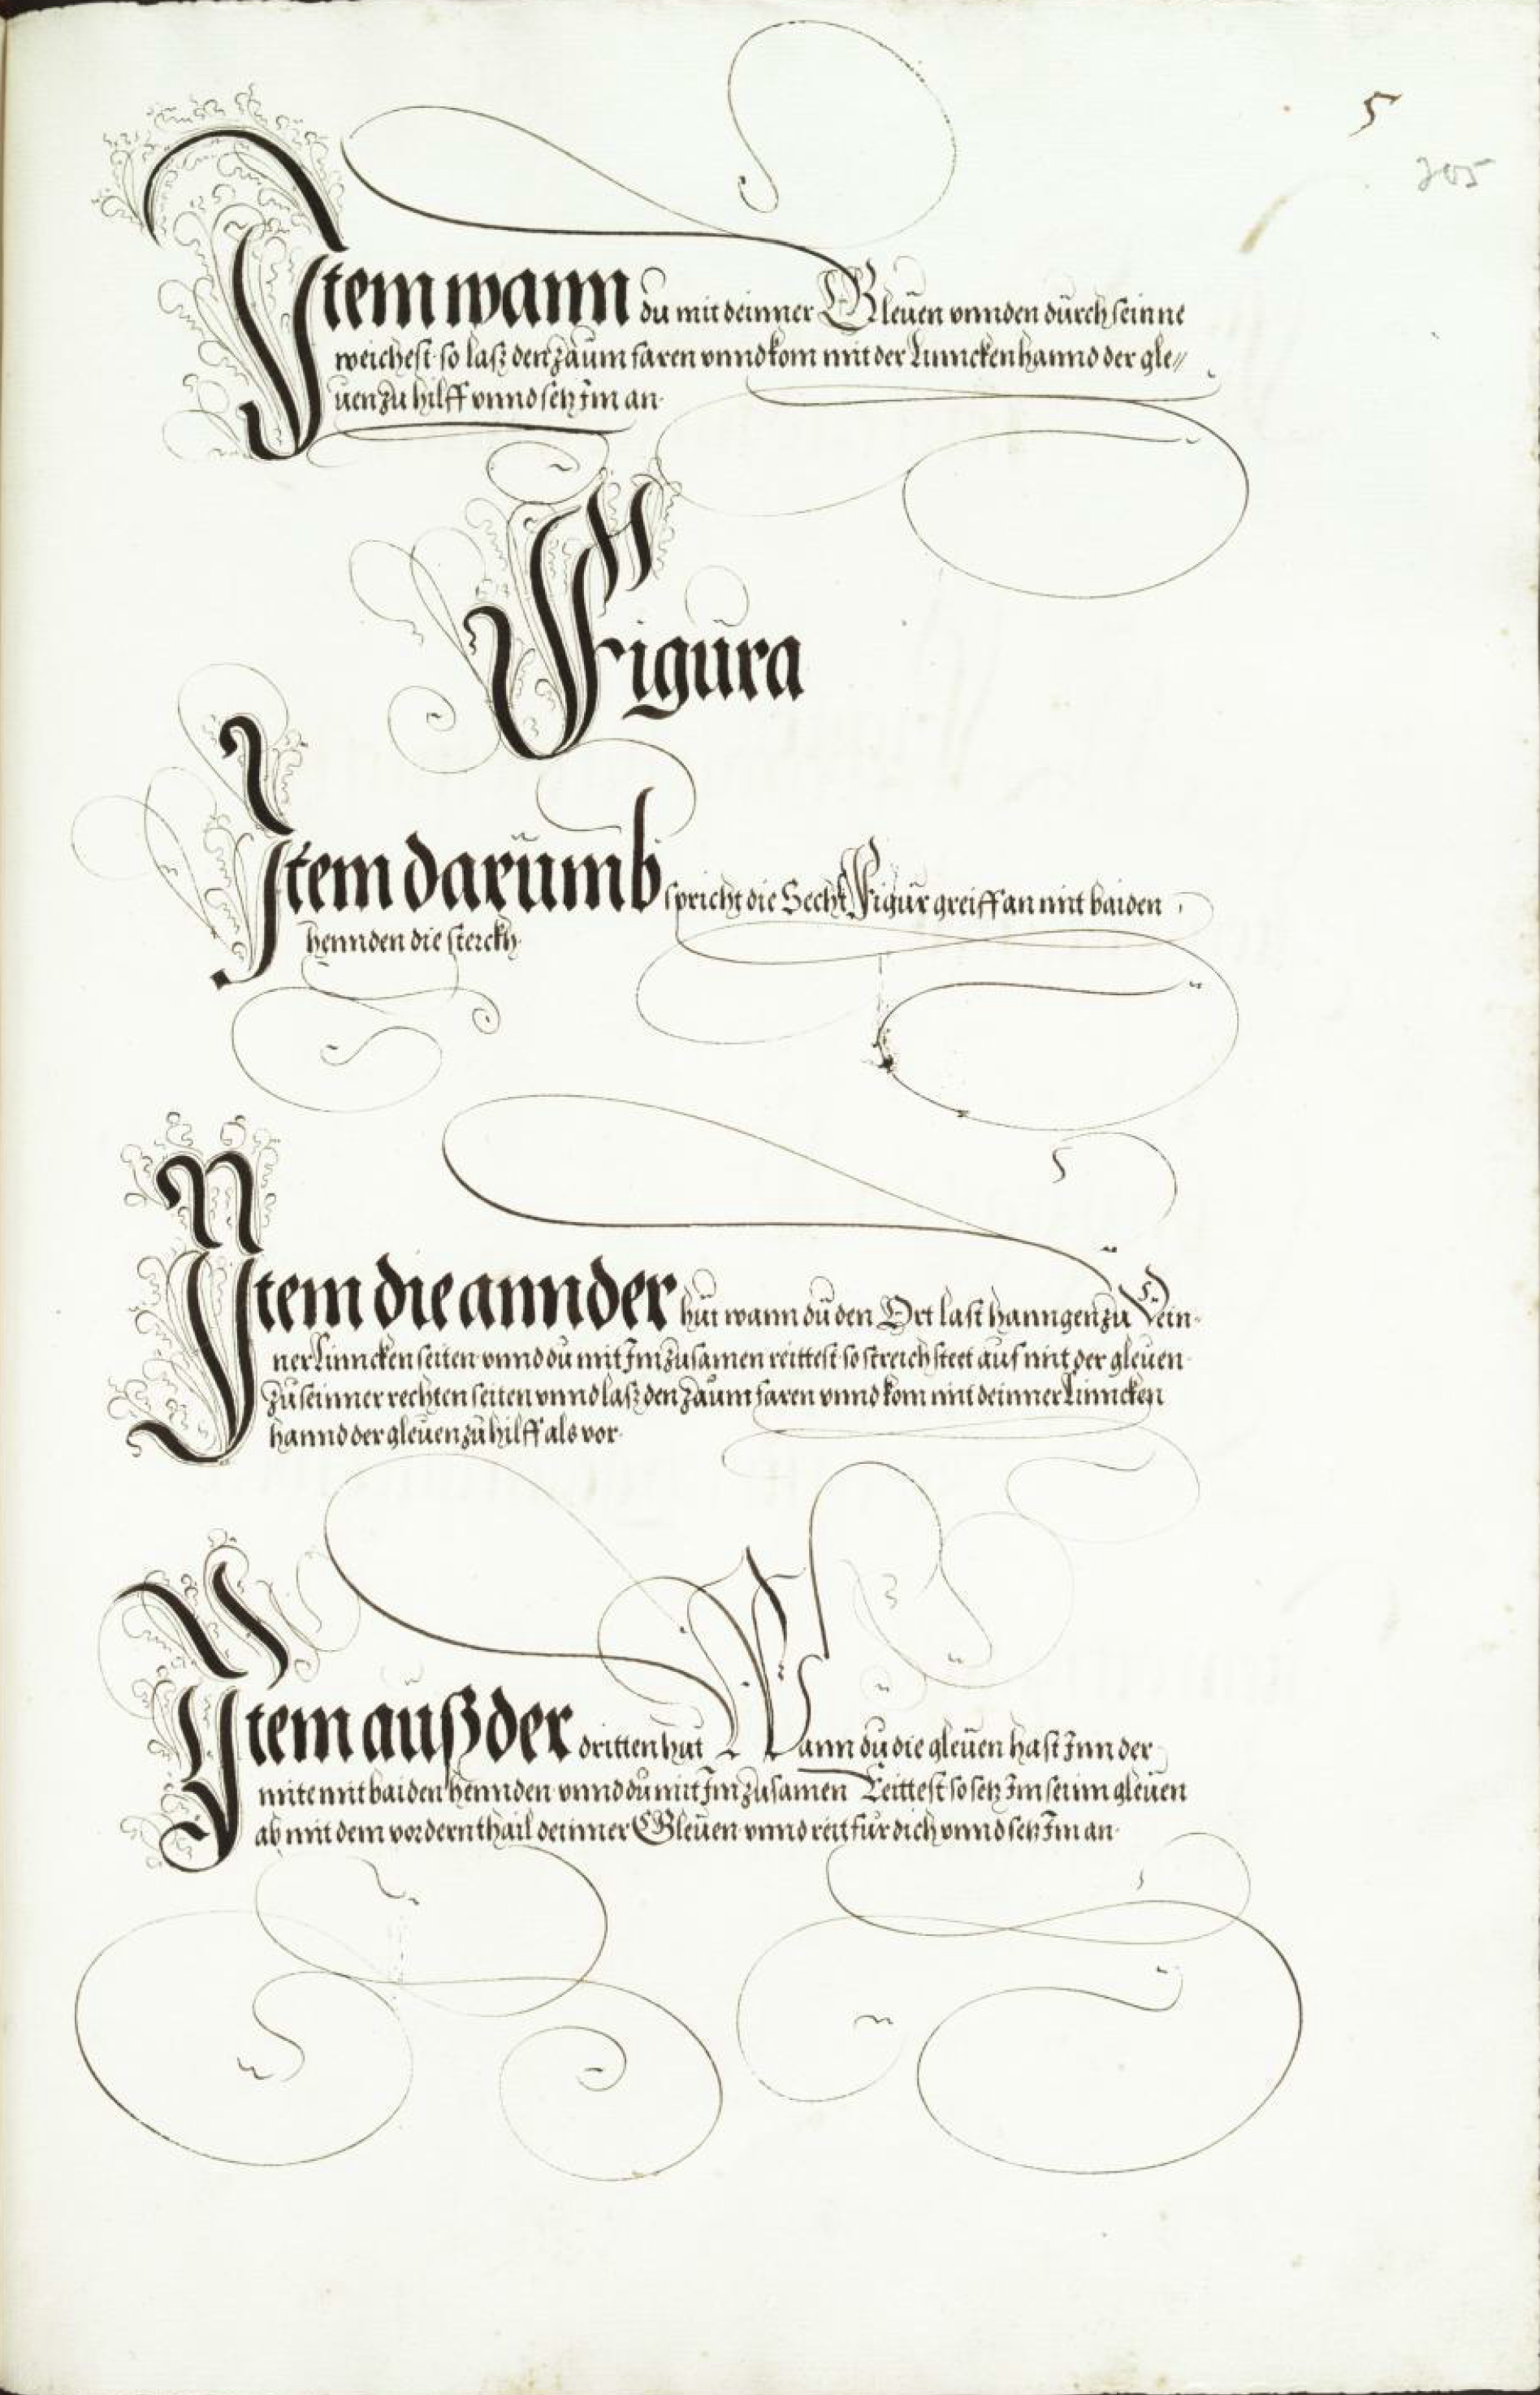 5
205
Item wann du mit deinner Gleuen vnnden durch seinne
weichest so lasz den zaum faren vnnd kom mit der Linncken hannd der gle⸗
uen zu hilff vnnd setz im an.
Figura
Item darumb spricht die Sechst Figur greiff an mit baiden
hennden die sterckh.
Item die annder hut wann du den Ort last hanngen zu Dein-
ner Linncken seiten vnnd du mit Im zusamen reittest so streich stet auf mit der gleuen
zu seinner rechten seiten vnnd lasz den zaum faren vnnd kom mit deinner Linncken
hannd der gleuen zu hilff als vor.
Item außder dritten hut Wann du die gleuen hast Inn der
mite mit baiden hennden vnnd du mit Im zusamen Reittest so setz Im sein gleuen
ab mit dem vordern thail deinner Gleuen vnnd reit für dich vnnd setz Im an.